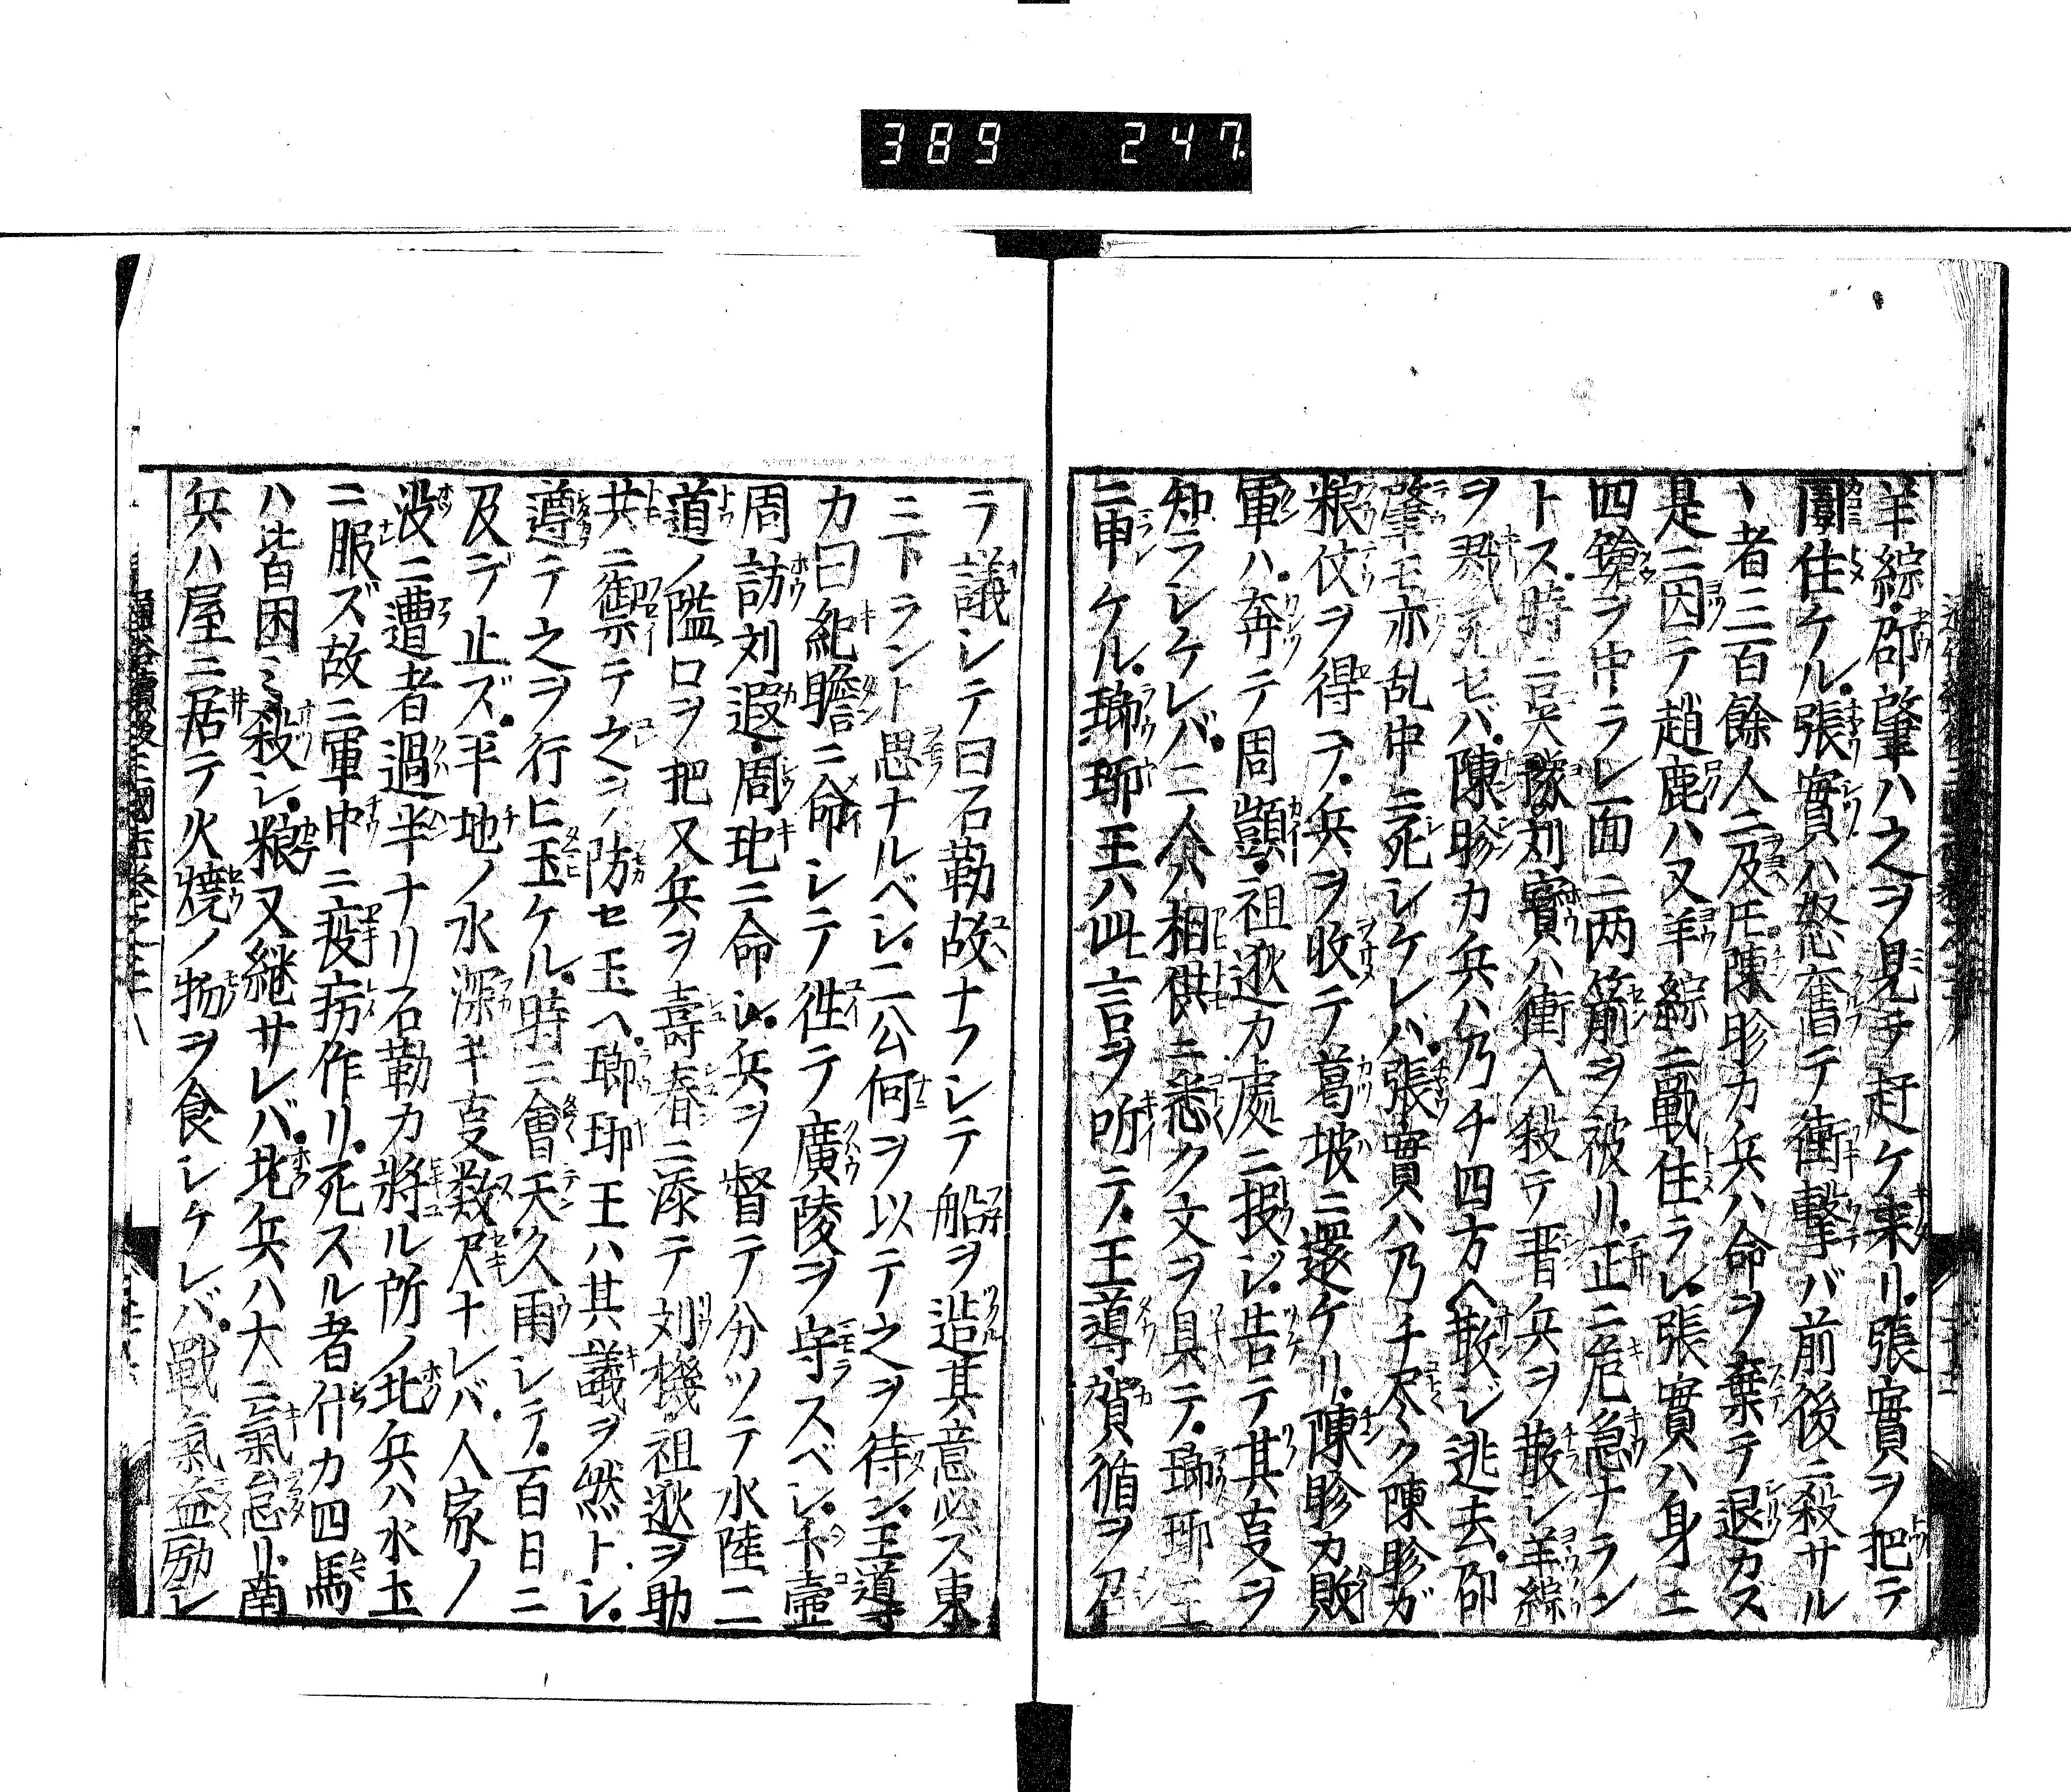 389 247
羊綜邵肇ハ之ヲ見テ赶ケ来リ張實ヲ把テ
圍住ケル張實ハ怒奮テ衝撃バ前後ニ殺サル
ヽ者三百餘人ニ及圧陳眕カ兵ハ命ヲ棄テ退カズ
是ニ因テ趙鹿ハ又羊綜ニ戰住ラレ張實ハ身ニ
四鎗ヲ中ラレ面ニ两箭ヲ被リ正ニ危急ナラン
トス時ニ吴豫刘寳ハ衝入殺テ晋ノ兵ヲ散シ羊綜
ヲ死セバ陳眕カ兵ハ乃チ四方へ散ジ逃去邵
肇モ亦乱中ニ死シケレバ張實ハ乃チ尽ク陳眕ガ
粮仗ヲ得テ兵ヲ收テ葛坡ニ還ケリ陳眕カ敗
軍ハ奔テ周顗祖逖カ處ニ投ジ告テ其㕝ヲ
知ラシケレバ二人ハ相供ニ悉ク文ヲ具テ瑯琊王
ニ申ケル瑯琊王ハ此言ヲ听テ王導賀循ヲ召
ラ議シテ曰石勒故ナフシテ船ヲ造其意必ズ東
ニ下ラント思ナルベシ二公何ヲ以テ之ヲ待ン王導
カ曰紀瞻ニ命シテ徃テ廣陵ヲ守スベシ卞壼
周訪刘遐周玘ニ命シ兵ヲ督テ分ツテ水陸二
道ノ隘口ヲ把又兵ヲ壽春ニ添テ刘機祖逖ヲ助
共ニ禦テ之ヲ防セ玉へ瑯琊王ハ其議ヲ然トシ
遵テ之ヲ行ヒ玉ケル時ニ會天久雨シテ百日ニ
及テ止ズ平地ノ水深キ㕝数尺ナレバ人家ノ
没ニ遭者過半ナリ石勒カ將ル所ノ北兵ハ水土
ニ服ズ故ニ軍中ニ疫病作リ死スル者什カ四馬
ハ皆困ミ殺シ粮又継サレバ北兵ハ大ニ氣怠リ南
兵ハ屋ニ居テ火燒ノ物ヲ食シケレバ戰氣益励シ